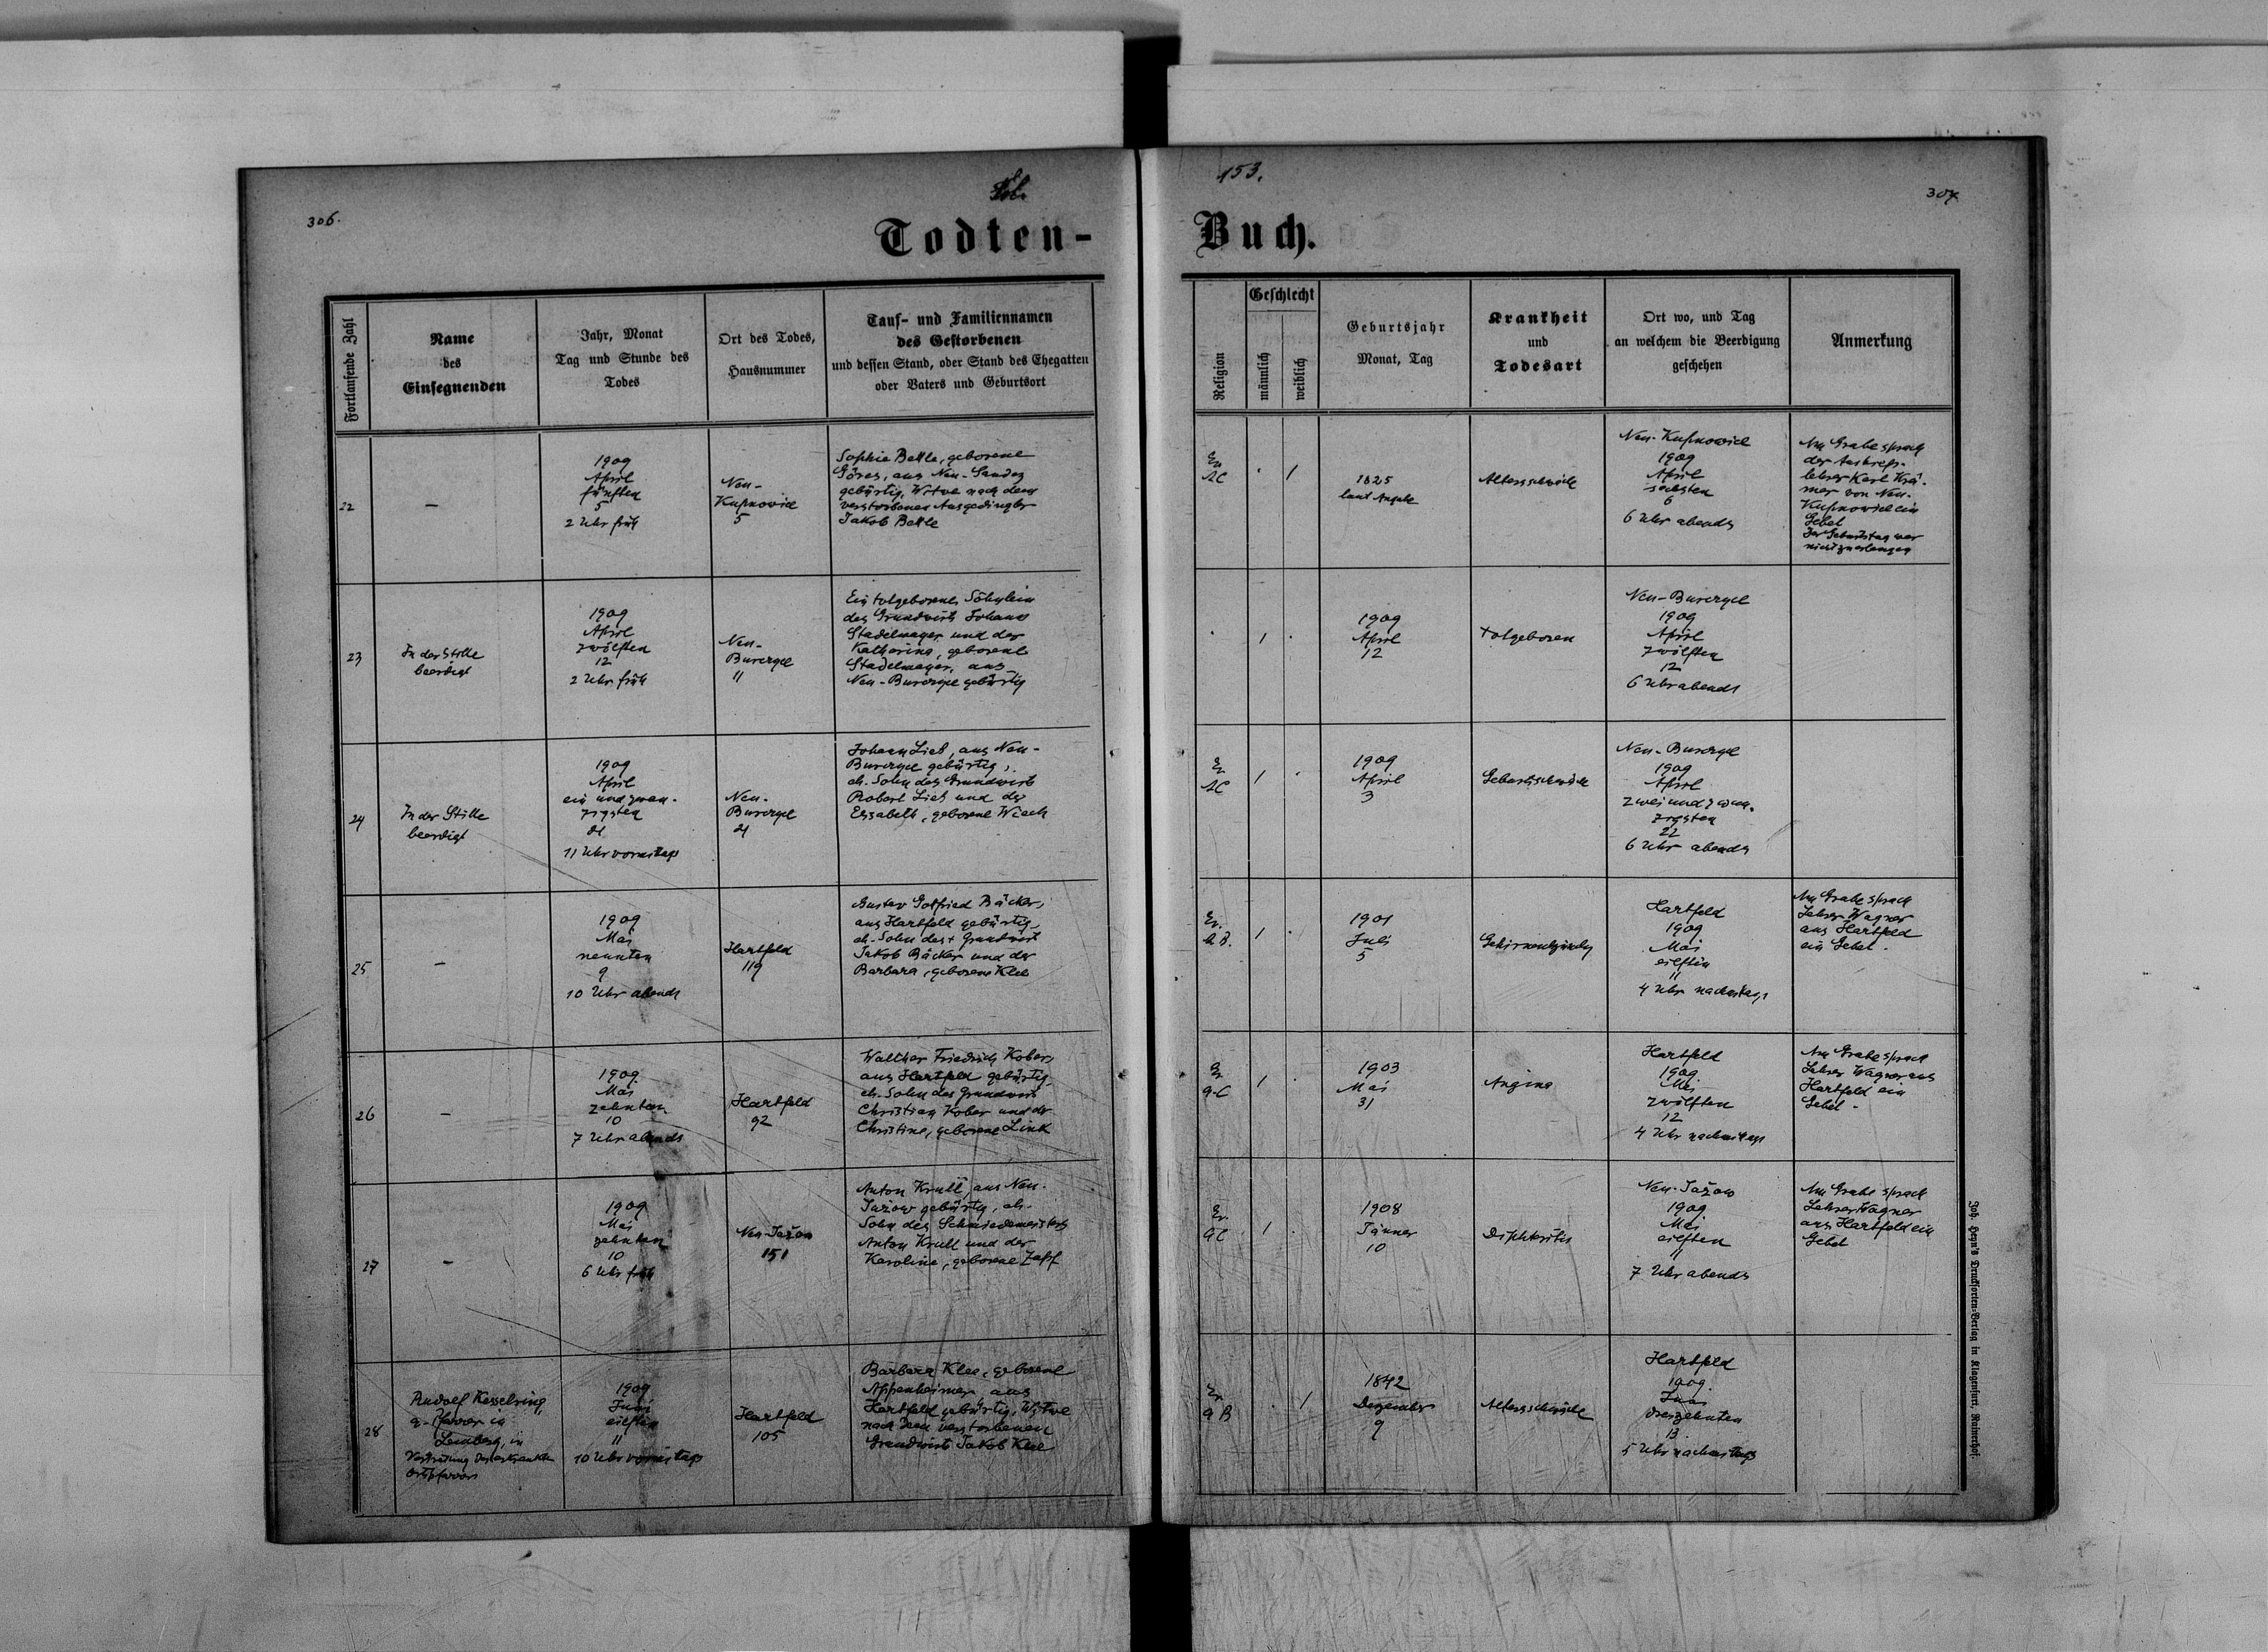 306.
153.
307
Todten-
Buch.
Fortlaufende Zahl
Name
des
Einsegnenden
Jahr, Monat
Tag und Stunde des
Todes
Ort des Todes,
Hausnummer
Tauf- und Familiennamen
des Gestorbenen
und dessen Stand, oder Stand des Ehegatten
oder Vaters und Geburtsort
Religion
Geschlecht
männlich
weiblich
Geburtsjahr
Monat, Tag
Krankheit
und
Todesart
Ort wo, und Tag
an welchem die Beerdigung
geschehen
Anmerkung
22
—
1909
April
fünften
5
2 Uhr früh
Neu-
Kupnowice
5
Sophie Bekke, geborene
Göres, aus Neu-Sandez
gebürtig, Witwe nach dem
verstorbenen Ausgedingler
Jakob Bekke
Ev
AC
1
1825
laut Angabe
Altersschwäche
Neu-Kupnowice
1909
April
sechsten
6
6 Uhr abends
Am Grabe sprach
der
lehrer Karl Krä-
mer von Neu-
Kupnowice ein
Gebet
Der Geburtstag war
nicht zu erlangen
23
In der Stille
beerdigt
1909
April
zwölften
12
2 Uhr früh
Neu-
Burczyce
11
Ein totgeborenes Söhnlein
des Grundwirts Johann
Stadelmayer und der
Katharina, geborene
Stadelmayer, aus
Neu-Burczyce gebürtig
1
1909
April
12
totgeboren
Neu-Burczyce
1909
April
zwölften
12
6 Uhr abends
24
In der Stille
beerdigt
1909
April
ein und zwan-
zigsten
21
11 Uhr vormittags
Neu-
Burczyce
21
Johann Lieb, aus Neu-
Burczyce gebürtig,
eh. Sohn des Grundwirts
Robert Lieb und der
Elisabeth, geborene Wiech
Ev
AC
1
1909
April
3
Geburtsschwäche
Neu-Burczyce
1909
April
zwei und zwan-
zigsten
22
6 Uhr abends
25
—
1909
Mai
neunten
9
10 Uhr abends
Hartfeld
119
Gustav Gotfried Bäcker,
aus Hartfeld gebürtig,
eh. Sohn des † Grundwirt
Jakob Bäcker und der
Barbara, geborene Klee
Ev.
A B.
1
1901
Juli
5
Gehirnentzündg
Hartfeld
1909
Mai
eilften
11
4 Uhr nachmittags
Am Grabe sprach
Lehrer Wagner
aus Hartfeld
ein Gebet.
26
—
1909
Mai
zehnten
10
7 Uhr abends
Hartfeld
92
Walther Friedrich Kober,
aus Hartfeld gebürtig,
eh. Sohn des Grundwirts
Christian Kober und der
Christine, geborene Link
Ev
A C
1
1903
Mai
31
Angina
Hartfeld
1909
Mai
zwölften
12
4 Uhr nachmittags
Am Grabe sprach
Lehrer Wagner aus
Hartfeld ein
Gebet.
27
—
1909
Mai
zehnten
10
6 Uhr früh
Neu-Jažow
151
Anton Krull, aus Neu-
Jažow gebürtig, eh.
Sohn des Schmiedemeisters
Anton Krull und der
Karoline, geborene Zapf
Ev.
AC
1
1908
Jänner
10
Diphteritis
Neu-Jažow
1909
Mai
eilften
11
7 Uhr abends
Am Grabe sprach
Lehrer Wagner
aus Hartfeld ein
Gebet
28
Rudolf Kesselring,
ev. Pfarrer in
Lemberg, in
Vertretung des erkrankten
Ortspfarrers
1909
Juni
eilften
11
10 Uhr vormittags
Hartfeld
105
Barbara Klee, geborene
Appenheimer, aus
Hartfeld gebürtig, Witwe
nach dem verstorbenen
Grundwirt Jakob Klee
Ev.
A B
1
1842
Dezember
9
Altersschwäche
Hartfeld
1909.
Juni
dreizehnten
13
5 Uhr nachmittags
Joh. Heyn's Drucksorten-Verlag in Klagenfurt, Rainerhof.